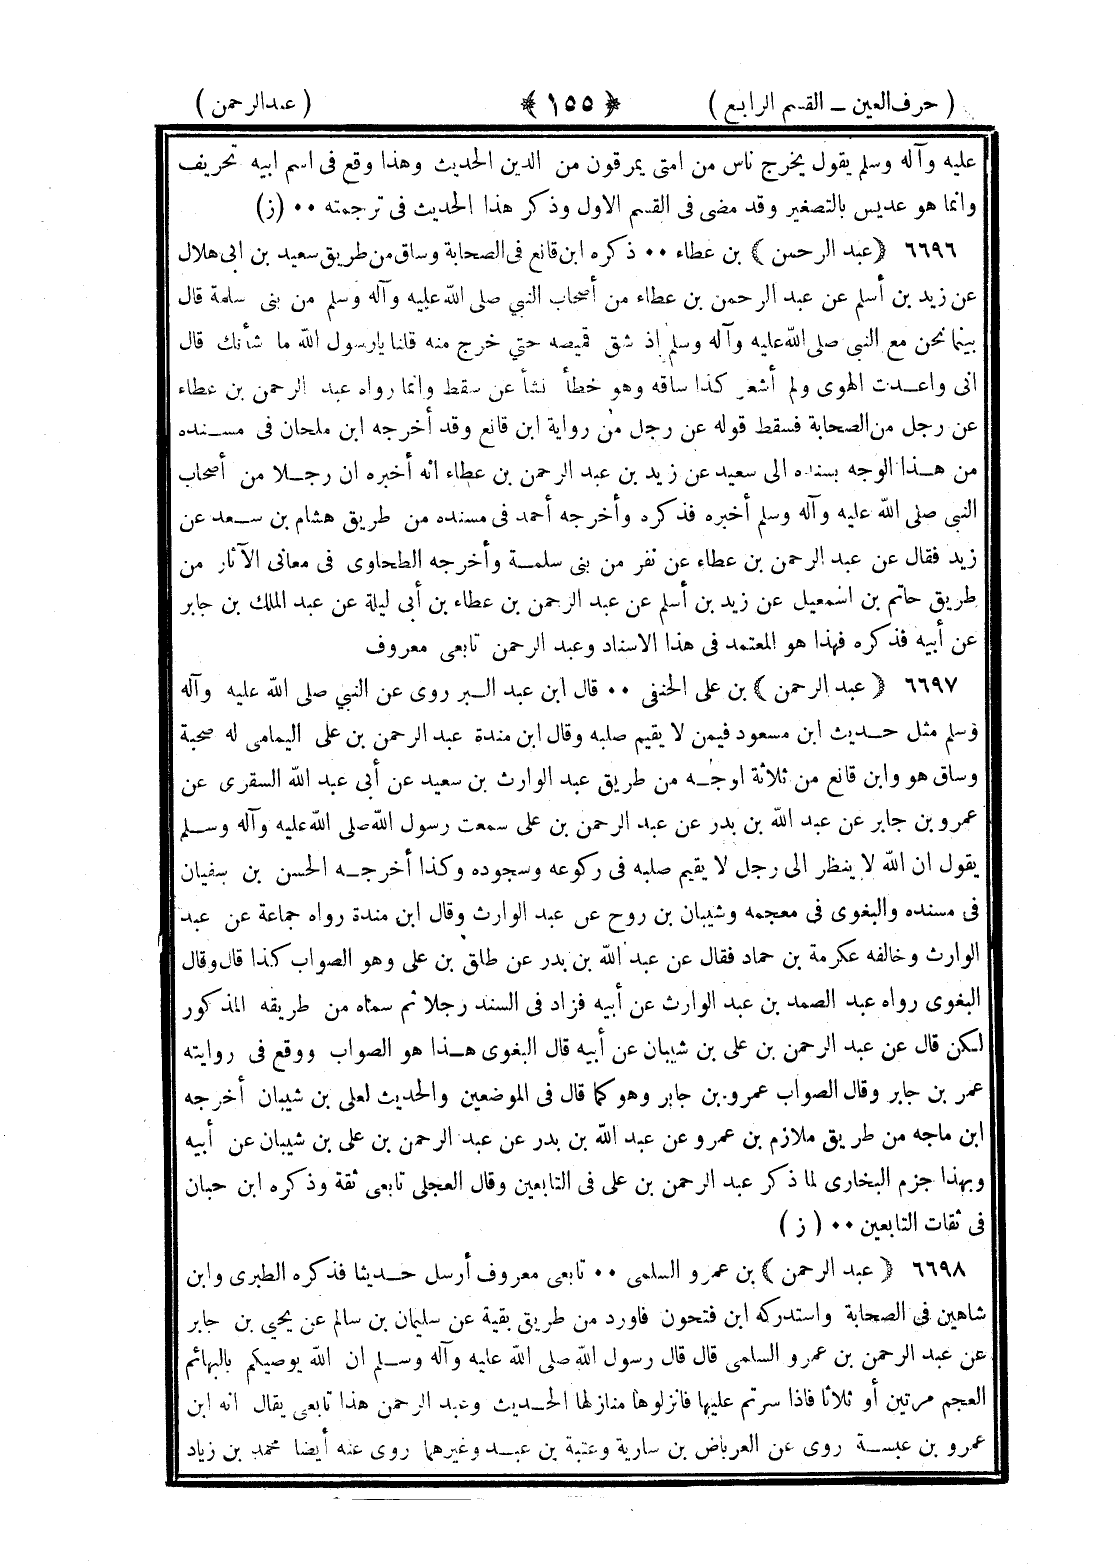 ( حرف العين ـ القسم الرابع ) ﴿ ١٥٥ ﴾ ( عبدالرحمن )
عليه وآله وسلم يقول يخرج ناس من امتى يمرقون من الدين الحديث وهذا وقع فى اسم ابيه تحريف
وانما هو عديس بالتصغير وقد مضى فى القسم الاول وذكر هذا الحديث فى ترجمته ٠٠ (ز)
٦٦٩٦ ﴿ عبد الرحمن ﴾ بن عطاء ٠٠ ذكره ابن قانع فى الصحابة وساق من طريق سعيد بن ابى هلال
عن زيد بن أسلم عن عبد الرحمن بن عطاء من أصحاب النبي صلى الله عليه وآله وسلم من بنى سلمة قال
بينما نحن مع النبى صلى الله عليه وآله وسلم إذ شق قميصه حتي خرج منه قلنا يارسول الله ما شأنك قال
انى واعـدت الهوى ولم أشعر كذا ساقه وهو خطأ نشأ عن سقط وانما رواه عبد الرحمن بن عطاء
عن رجل من الصحابة فسقط قوله عن رجل من رواية ابن قانع وقد أخرجه ابن ملحان فى مسـنده
من هـذا الوجه بسنده الى سعيد عن زيد بن عبد الرحمن بن عطاء انه أخبره ان رجـلا من أصحاب
النبى صلى الله عليه وآله وسلم أخبره فذكره وأخرجه أحمد فى مسنده من طريق هشام بن سـعد عن
زيد فقال عن عبد الرحمن بن عطاء عن نفر من بنى سلمـة وأخرجه الطحاوى فى معانى الآثار من
طريق حاتم بن اسمعيل عن زيد بن أسلم عن عبد الرحمن بن عطاء بن أبي ليلة عن عبد الملك بن جابر
عن أبيه فذكره فهذا هو المعتمد فى هذا الاسناد وعبد الرحمن تابعى معروف
٦٦٩٧ ﴿ عبد الرحمن ﴾ بن على الحنفى ٠٠ قال ابن عبد الـبر روى عن النبي صلى الله عليه وآله
وسلم مثل حـديث ابن مسعود فيمن لا يقيم صلبه وقال ابن مندة عبد الرحمن بن على اليمامى له صحبة
وساق هو وابن قانع من ثلاثة اوجـه من طريق عبد الوارث بن سعيد عن أبى عبد الله السقرى عن
عمرو بن جابر عن عبد الله بن بدر عن عبد الرحمن بن على سمعت رسول الله صلى الله عليه وآله وسـلم
يقول ان الله لا ينظر الى رجل لا يقيم صلبه فى ركوعه وسجوده وكذا أخرجـه الحسن بن سفيان
فى مسنده والبغوى فى معجمه وشيبان بن روح عن عبد الوارث وقال ابن مندة رواه جماعة عن عبد
الوارث وخالفه عكرمة بن حماد فقال عن عبد الله بن بدر عن طلق بن على وهو الصواب كذا قال وقال
البغوى رواه عبد الصمد بن عبد الوارث عن أبيه فزاد فى السند رجلا ثم سماه من طريقه المذكور
لـكن قال عن عبد الرحمن بن على بن شيبان عن أبيه قال البغوى هـذا هو الصواب ووقع فى روايته
عمر بن جابر وقال الصواب عمرو بن جابر وهو كما قال فى الموضعين والحديث لعلى بن شيبان أخرجه
ابن ماجه من طريق ملازم بن عمرو عن عبد الله بن بدر عن عبد الرحمن بن على بن شيبان عن أبيه
وبهذا جزم البخارى لما ذكر عبد الرحمن بن على فى التابعين وقال العجلى تابعى ثقة وذكره ابن حبان
فى ثقات التابعين ٠٠ ( ز )
٦٦٩٨ ﴿ عبد الرحمن ﴾ بن عمرو السلمى ٠٠ تابعى معروف أرسل حـديثا فذكره الطبرى وابن
شاهين فى الصحابة واستدركه ابن فتحون فاورد من طريق بقية عن سليمان بن سالم عن يحيى بن جابر
عن عبد الرحمن بن عمرو السلمى قال قال رسول الله صلى الله عليه وآله وسـلم ان الله يوصيكم بالبهائم
العجم مرتين أو ثلاثا فاذا سرتم عليها فانزلوها منازلها الحـديث وعبد الرحمن هذا تابعى يقال انه ابن
عمرو بن عبسـة روى عن العرباض بن سارية وعتبة بن عبـد وغيرهما روى عنه أيضا محمد بن زياد